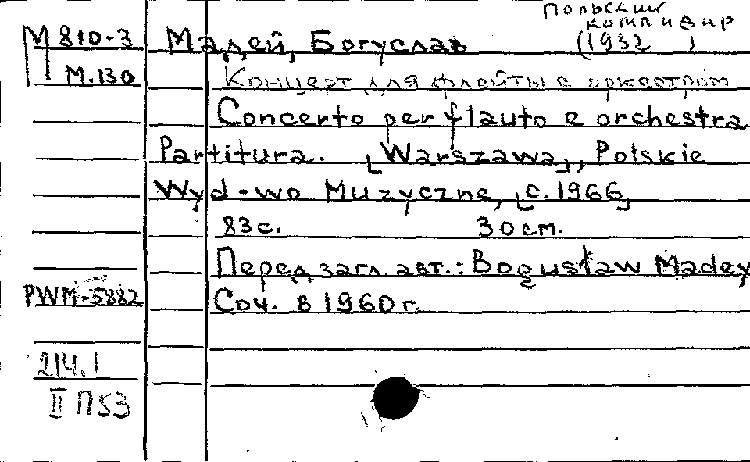 Польский
композитор
М810-3 Мадей, Богуслав (1932 )
М.130 Концерт для флейты с оркестром
Concerto per flauto e orchestra
Partitura. [Warszawa], Polskie
Wyd-wo Muzyczne, [c.1966]
83с. 30см.
Перед загл. авт.: Bogusław Madey
PWM-5882 Соч. в 1960г.
214.1
II П53